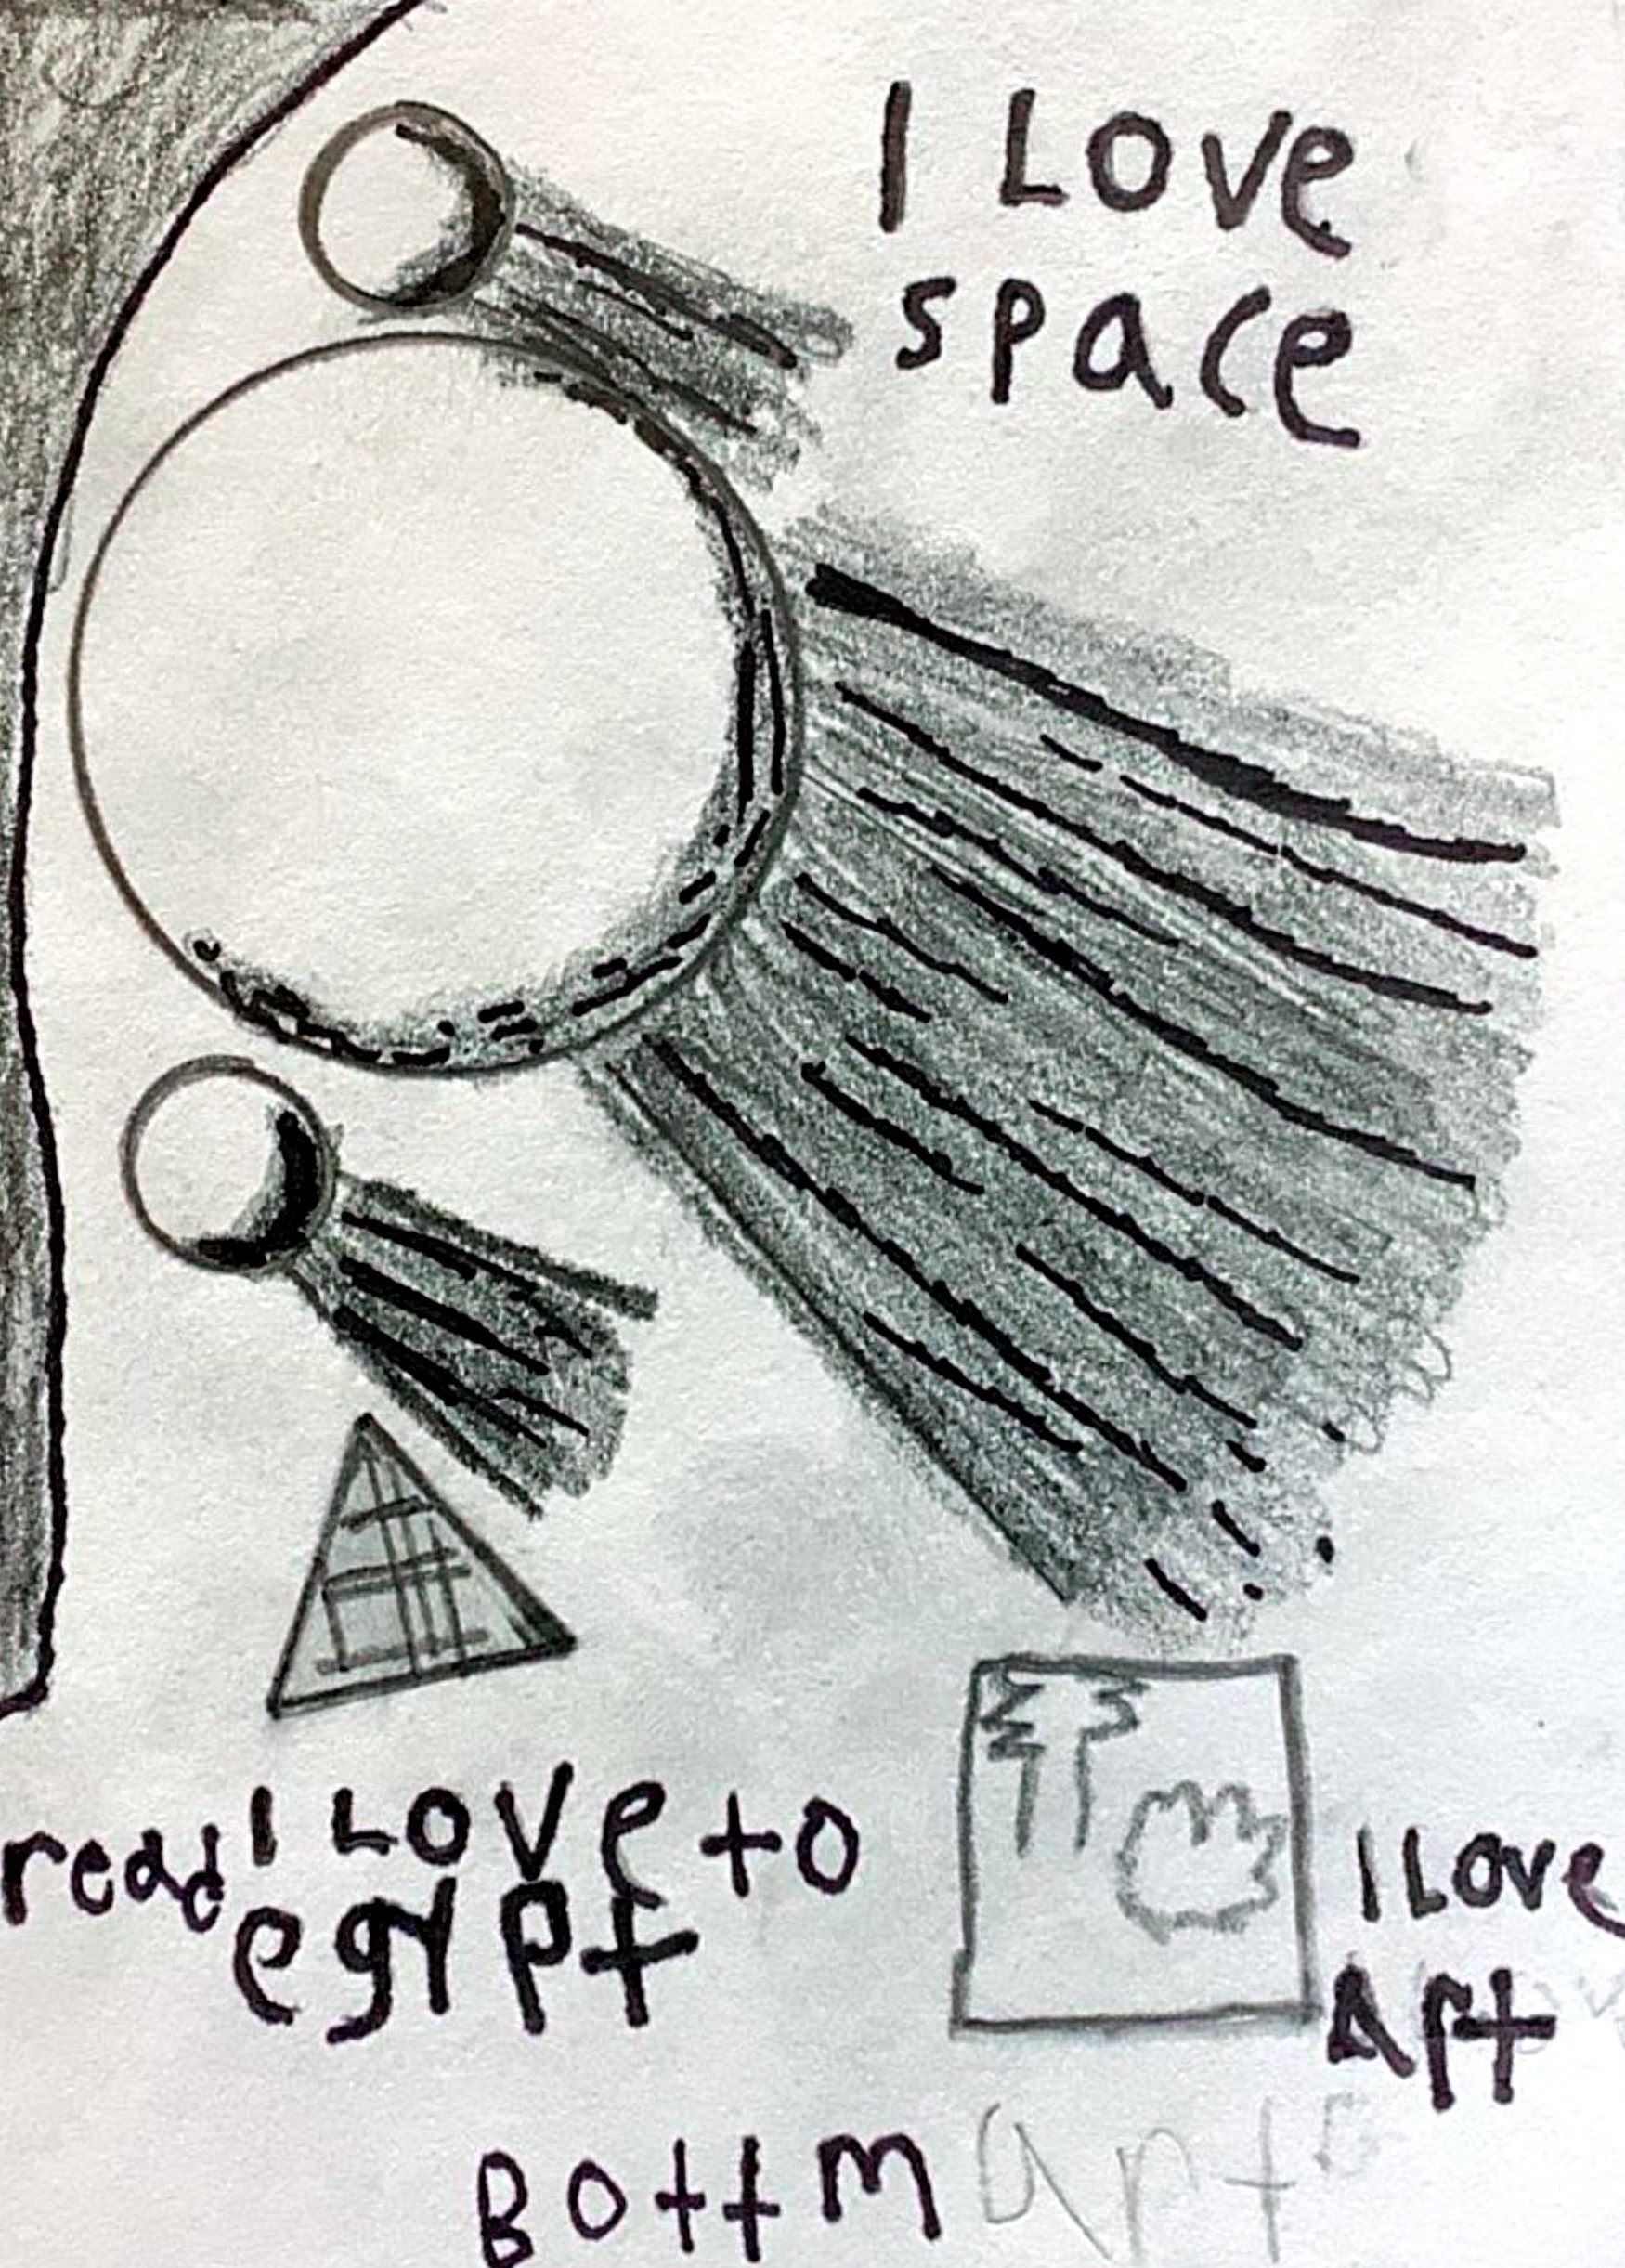 I Love
space
read I Love to
egypt
I Love
Art
Bottm
art